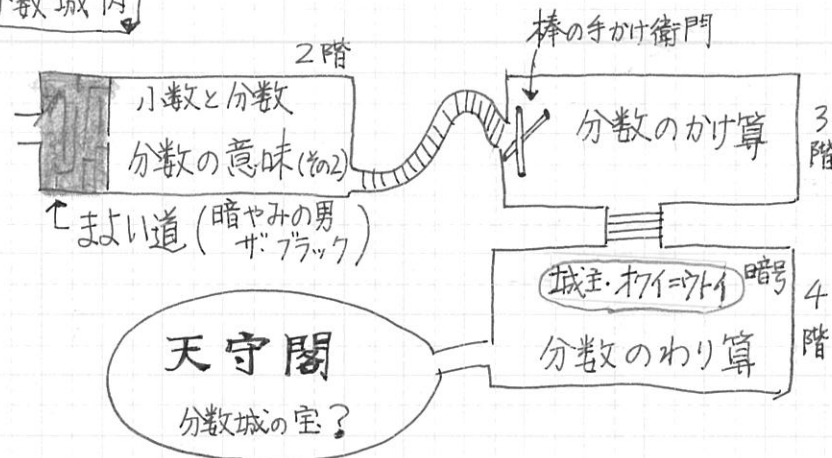 数城内
2階
小数と分数
分数の意味(その2)
まよい道(暗やみの男
ザ・ブラック)
棒の手かけ衛門
分数のかけ算
3階
城主・オワイ=ウトイ 暗号
分数のわり算
4階
天守閣
分数城の宝?